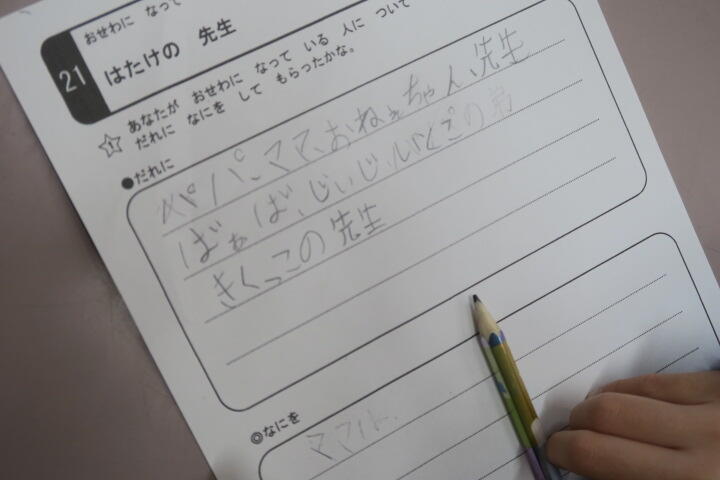 おせわに なって
21 はたけの 先生
あなたが おせわに なって いる 人に ついて
だれに なにを して もらったかな。
●だれに
パパ、ママ、おねぇちゃん、先生
ばぁば、じぃじ、
きくっこの先生
◎なにを
ママは、